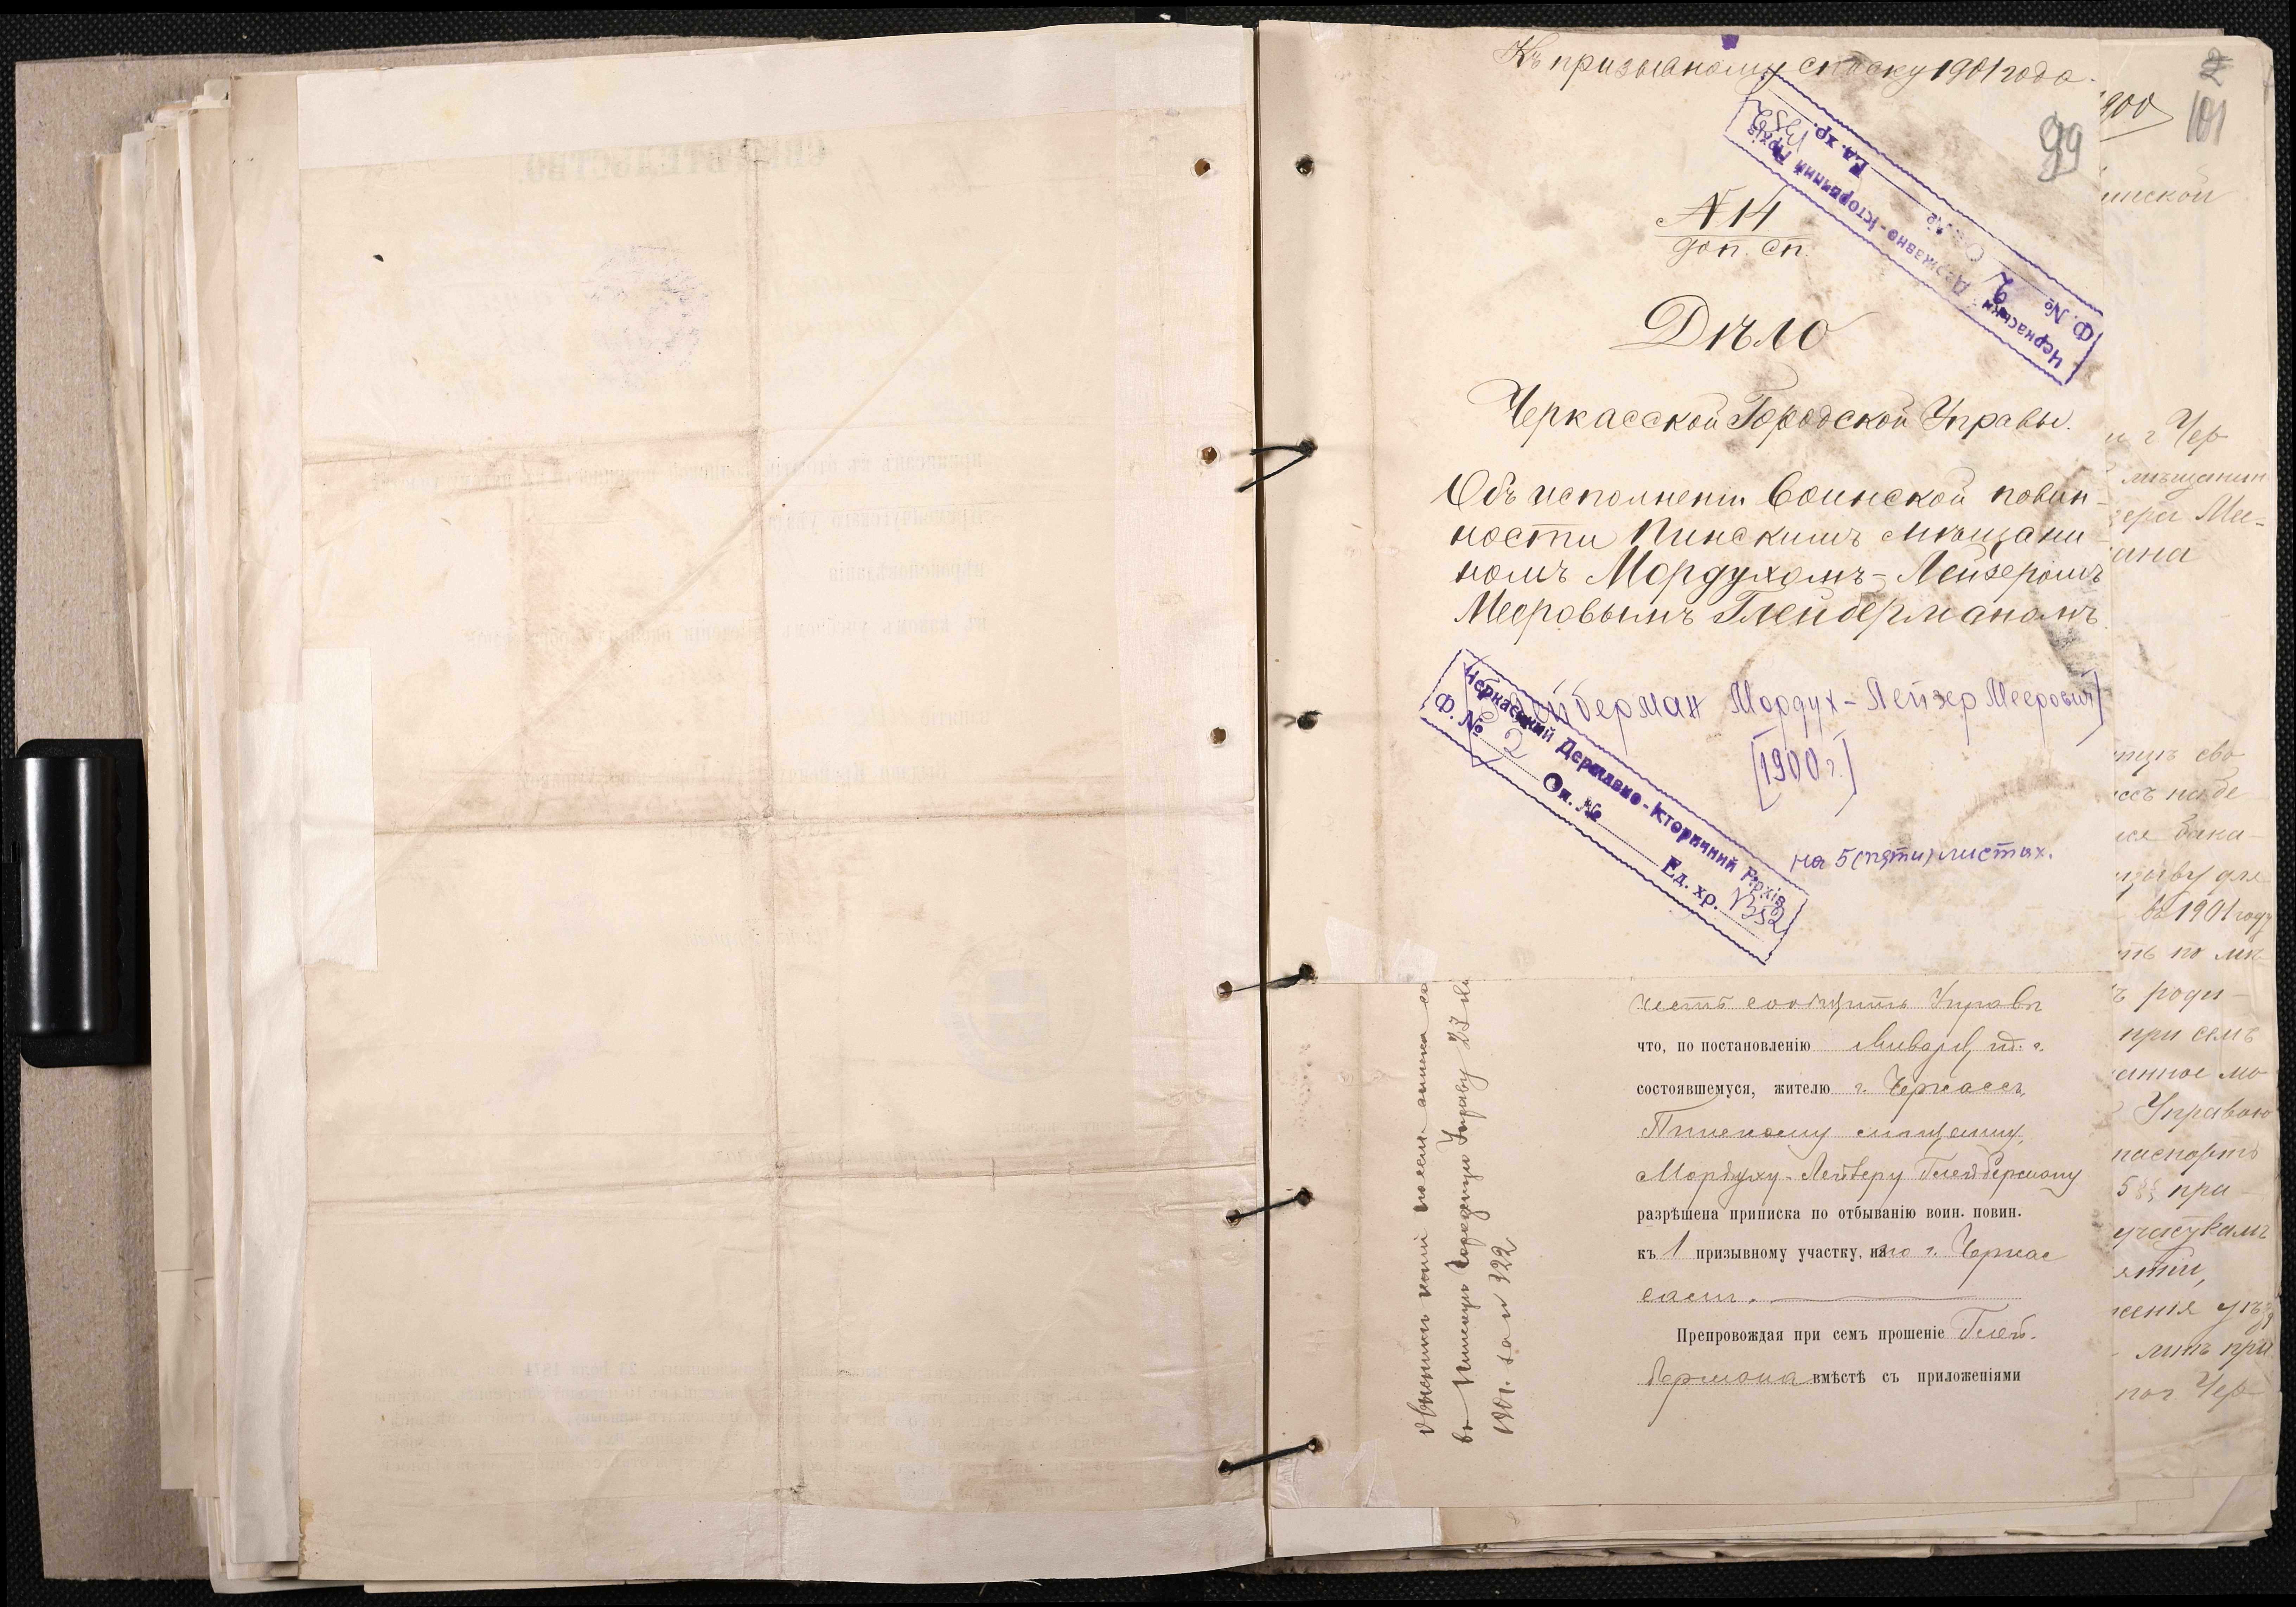 Къ призывному списку 1901 года.
99
2
101
№ 14
доп. сп.
Черкаський Державно-Історичний Архів
Ф. № 2 Оп. № Ед. хр. 1352
Дѣло
Черкасской Городской Управы.
Объ исполненіи воинской повин-
ности Пинскимъ мѣщани-
номъ Мордухомъ-Лейзеромъ
Мееровымъ Глейберманомъ.
[Глейберман Мордух-Лейзер Меерович]
[1900 г.]
Черкаський Державно-Історичний Архів
Ф. № 2 Оп. № Ед. хр. 1352
на 5 (пяти) листах.
честь сообщить Управѣ
что, по постановленію января, г.
состоявшемуся, жителю г. Черкассъ,
Пинскому мѣщанину,
Мордуху-Лейзеру Глейберману
разрѣшена приписка по отбыванію воин. повин.
къ 1 призывному участку, по г. Черкас
самъ.
Препровождая при семъ прошеніе Глей-
бермана вмѣстѣ съ приложеніями
въ Пинскую Городскую Управу 27
1901 г. за № 322
900
инской
г Чер
мѣщанин
ера Ме-
ана
въ 1901 году
роди-
при семъ
Управою
паспортъ
участкамъ
Чер-